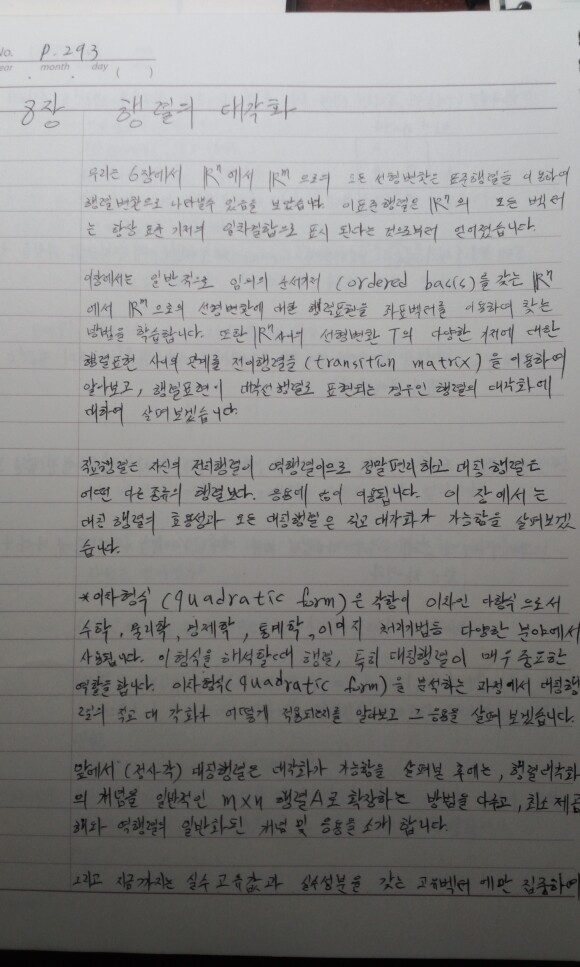 No. P. 293
ear month, day ( )
8장 행렬의 대각화
우리는 6장에서 ℝⁿ에서 ℝᵐ으로의 모든 선형변환은 표준행렬을 이용하여
행렬변환으로 나타낼수 있음을 보았습니다. 이표준행렬은 ℝⁿ의 모든 벡터
는 항상 표준 기저의 일차결합으로 표시 된다는 것으로부터 얻어졌습니다.
이장에서는 일반적으로 임의의 순서기저 (ordered basis)를 갖는 ℝⁿ
에서 ℝᵐ으로의 선형변환에 대한 행렬표현을 좌표벡터를 이용하여 찾는
방법을 학습합니다. 또한 ℝⁿ사이의 선형변환 T의 다양한 기저에 대한
행렬표현 사이의 관계를 전이행렬을 (transition matrix)을 이용하여
알아보고, 행렬표현이 대각선행렬로 표현되는 경우인 행렬의 대각화에
대하여 살펴보겠습니다.
직교행렬은 자신의 전치행렬이 역행렬이므로 정말편리하고 대칭 행렬은
어떤 다른 종류의 행렬보다. 응용에 많이 이용됩니다. 이 장에서는
대칭 행렬의 효용성과 모든 대칭행렬은 직교 대각화가 가능함을 살펴보겠
습니다.
*이차형식 (quadratic form)은 각항이 이차인 다항식 으로서
수학, 물리학, 경제학, 통계학, 이미지 처리기법등 다양한 분야에서
사용됩니다. 이 형식을 해석할때 행렬, 특히 대칭행렬이 매우 중요한
역할을 합니다. 이차형식(quadratic form)을 분석하는 과정에서 대칭행
렬의 직교 대 각화가 어떻게 적용되는지를 알아보고 그 응용을 살펴 보겠습니다.
앞에서 (정사각) 대칭행렬은 대각화가 가능함을 살펴본 후에는, 행렬대각화
의 개념을 일반적인 m×n 행렬A로 확장하는 방법을 다루고, 최소 제곱
해와 역행렬의 일반화된 개념 및 응용을 소개 합니다.
그리고 지금까지는 실수 고유값과 실수성분을 갖는 고유벡터 에만 집중하여